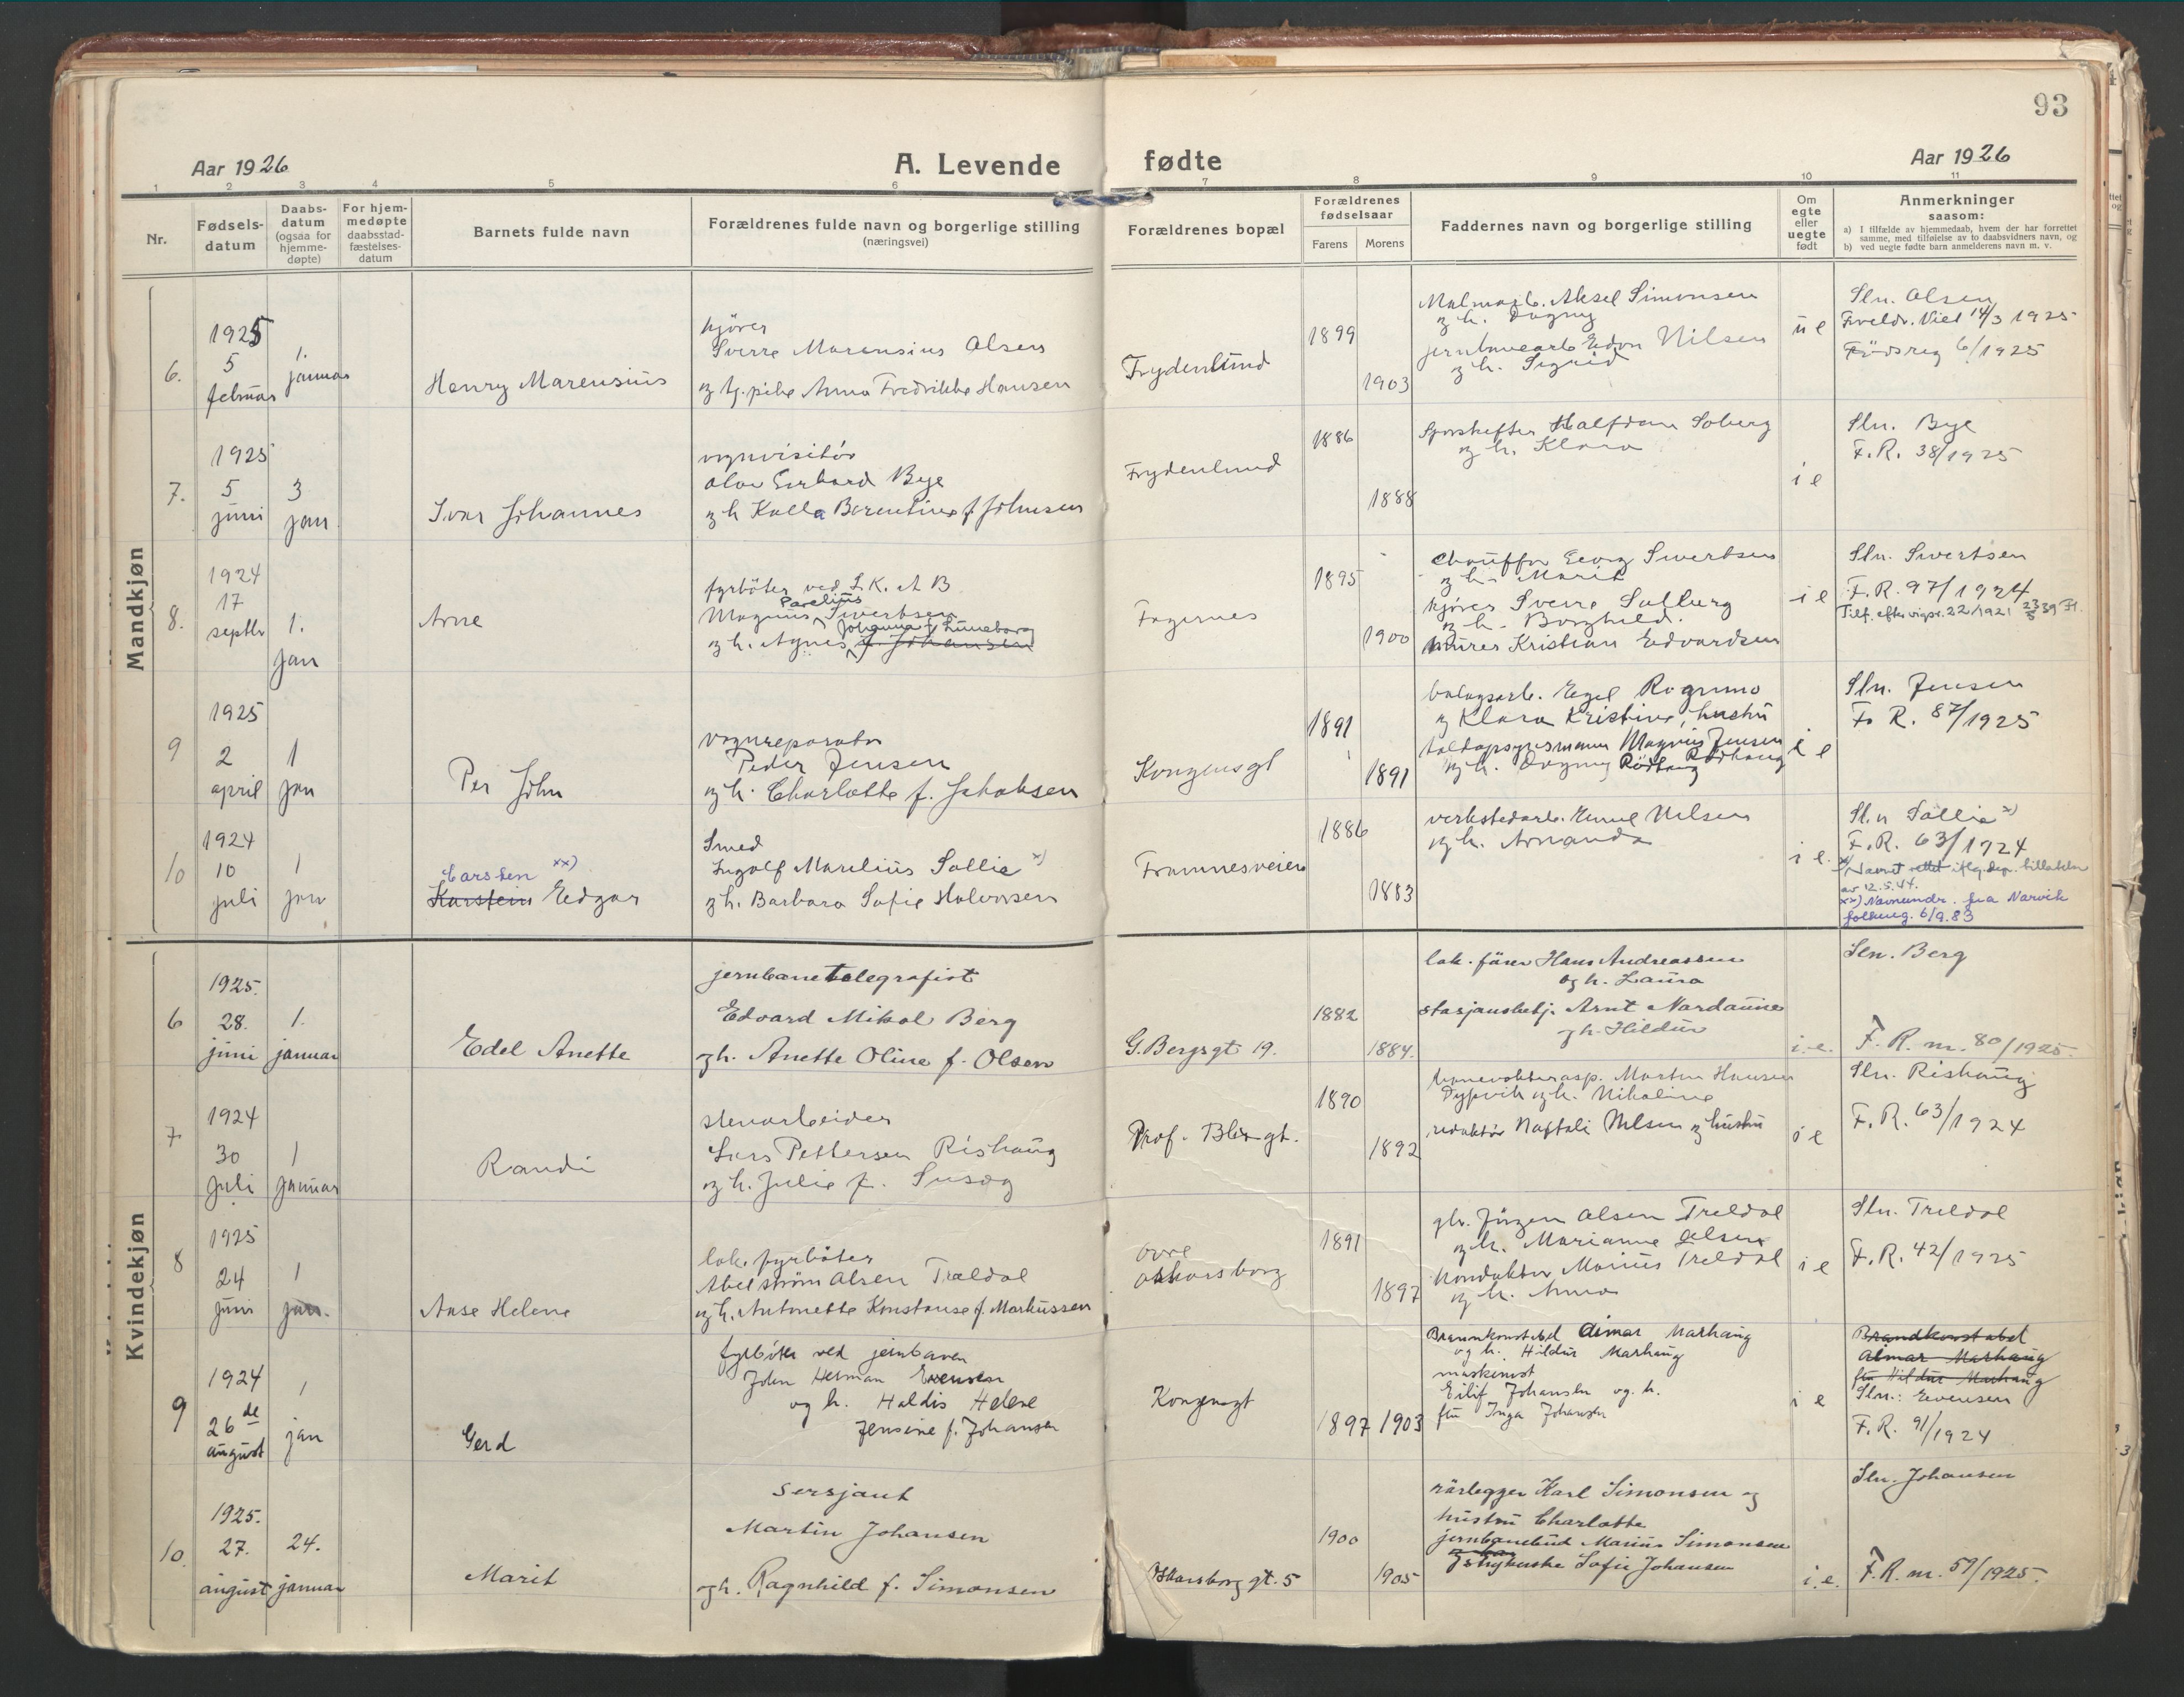 93
Aar 1926
A. Levende fødte
Aar 1926
1 2 3 4 5 6 7 8 9 10 11
Nr.
Fødsels-
datum
Daabs-
datum
(ogsaa for
hjemme-
døpte)
For hjem-
medøpte
daabsstad-
fæstelses-
datum
Barnets fulde navn
Forældrenes fulde navn og borgerlige stilling
(næringsvei)
Forældrenes bopæl
Forældrenes
fødselsaar
Farens
Morens
Faddernes navn og borgerlige stilling
Om
egte
eller
uegte
født
Anmerkninger
saasom:
a) I tilfælde av hjemmedaab, hvem der har forrettet
samme, med tilføielse av to daabsvidners navn, og
b) ved uegte fødte barn anmelderens navn m. v.
Mandkjøn
6.
1925
5
februar
1.
januar
Henry Marensius
kjører
Sverre Marensius Olsen
og tj. pike Anna Fredrikke Hansen
Frydenlund
1899
1903
Malmarb. Aksel Simonsen
og h. Dagny
jernbanearb Edon Nilsen
og h. Sigrid
u e
Sln. Olsen
Foreldr. Viet 14/3 1925
Fødsreg 6/1925
7.
1925
5
juni
3
jan
Ivar Johannes
vognvisitör
Olav Eirhard Bye
og h Kalla Berentine f Johnsen
Frydenlund
1886
1888
Sporskifter Halfdan Soberg
og h. Klara
i e
Sln. Bye
F. R. 38/1925
8.
1924
17
septbr
1.
jan
Arne
fyrbøter ved L. K. A B
Parelius
Magnus Sivertsen
Johanna f. Luneborg
og h. Agnes f. Johansen
Fagernes
1895
1900
Chauffør Georg Sivertsen
og h. Marit
kjører Sverre Solberg
og h. Borghild.
murer Kristian Edvardsen
i e
Sln. Sivertsen
F. R. 97/1924
Tilf. efter vigsr. 22/1921 23/5 39
9
1925
2
april
1
jan
Per John
vognreparatør
Peder Jensen
og h. Charlotte f. Jakobsen
Kongensgt
1891
1891
Egil Rognmo
og Klara Kristine, hustru
Magnus Jensen
og h. Dagny Rödhaug
i e
Sln. Jensen
F. R. 87/1925
10
1924
10
juli
1
jan
Carsten xx)
Karstein Edgar
Smed
Ingolf Marelius Sollie x)
og h. Barbara Sofie Halvorsen
Framnesveien
1886
1883
verkstedarb. Emil Nilsen
og h. Amanda
i e.
Sln Sollie x)
F. R. 63/1924
x) Navnet rettet iflg. dep. tillatelse
av 12.5.44.
xx) Navneendr. fra Narvik
folkereg. 6/9.83
Kvindekjøn
6
1925.
28.
juni
1.
januar
Edel Anette
jernbanetelegrafist
Edvard Mikal Berg
og h. Anette Oline f. Olsen
G. Bergsgt 19.
1882
1884.
lok. fører Hans Andreassen
og h. Laura
stasjonsbetj. Arnt Nordaune
og h. Hildur
i. e.
Sln. Berg
F. R. nr. 80/1925.
7
1924
30
juli
1
januar
Randi
stenarbeider
Lars Pettersen Rishaug
og h. Julie f. Susag
Prof. Blix gt.
1890
1892
banevokterasp. Martin Hansen
Dypvik og h. Nikoline
redaktör Naftali Nilsen og hustru
i e
Sln. Rishaug
F. R. 63/1924
8
1925
24
juni
1
jan.
Aase Helene
lok. fyrbøter
Abelstrøm Olsen Trældal
og h. Antonette Konstanse f. Markussen
Øvre
Oskarsborg
1891
1897
gbr. Jørgen Olsen Treldal
og h. Marianne Olsen
Konduktør Marius Treldal
og h. Anna
i e
Sln. Treldal
F. R. 42/1925
9
1924
26 de
august
1
jan
Gerd
fyrbøter ved jernbanen
John Herman Evensen
og h. Haldis Helene
Jensine f. Johansen
Kongensgt
1897
1903
Brannkonstabel Almar Marhaug
og h. Hildur Marhaug
maskinist
Eilif Johansen og. h.
fru Inga Johansen
i e
Brandkonstabel
Almar Marhaug
fru Hildur Marhaug
Sln.: Evensen
F. R. 91/1924
10.
1925.
27.
august
24.
januar
Marit
Sersjant
Martin Johansen
og h. Ragnhild f. Simonsen
Oskarsborg gt. 5
1900
1905
rørlegger Karl Simonsen og
hustru Charlotte
jernbanebud Marius Simonsen
Sofie Johansen
i. e.
Sln. Johansen
F. R. nr. 59/1925.